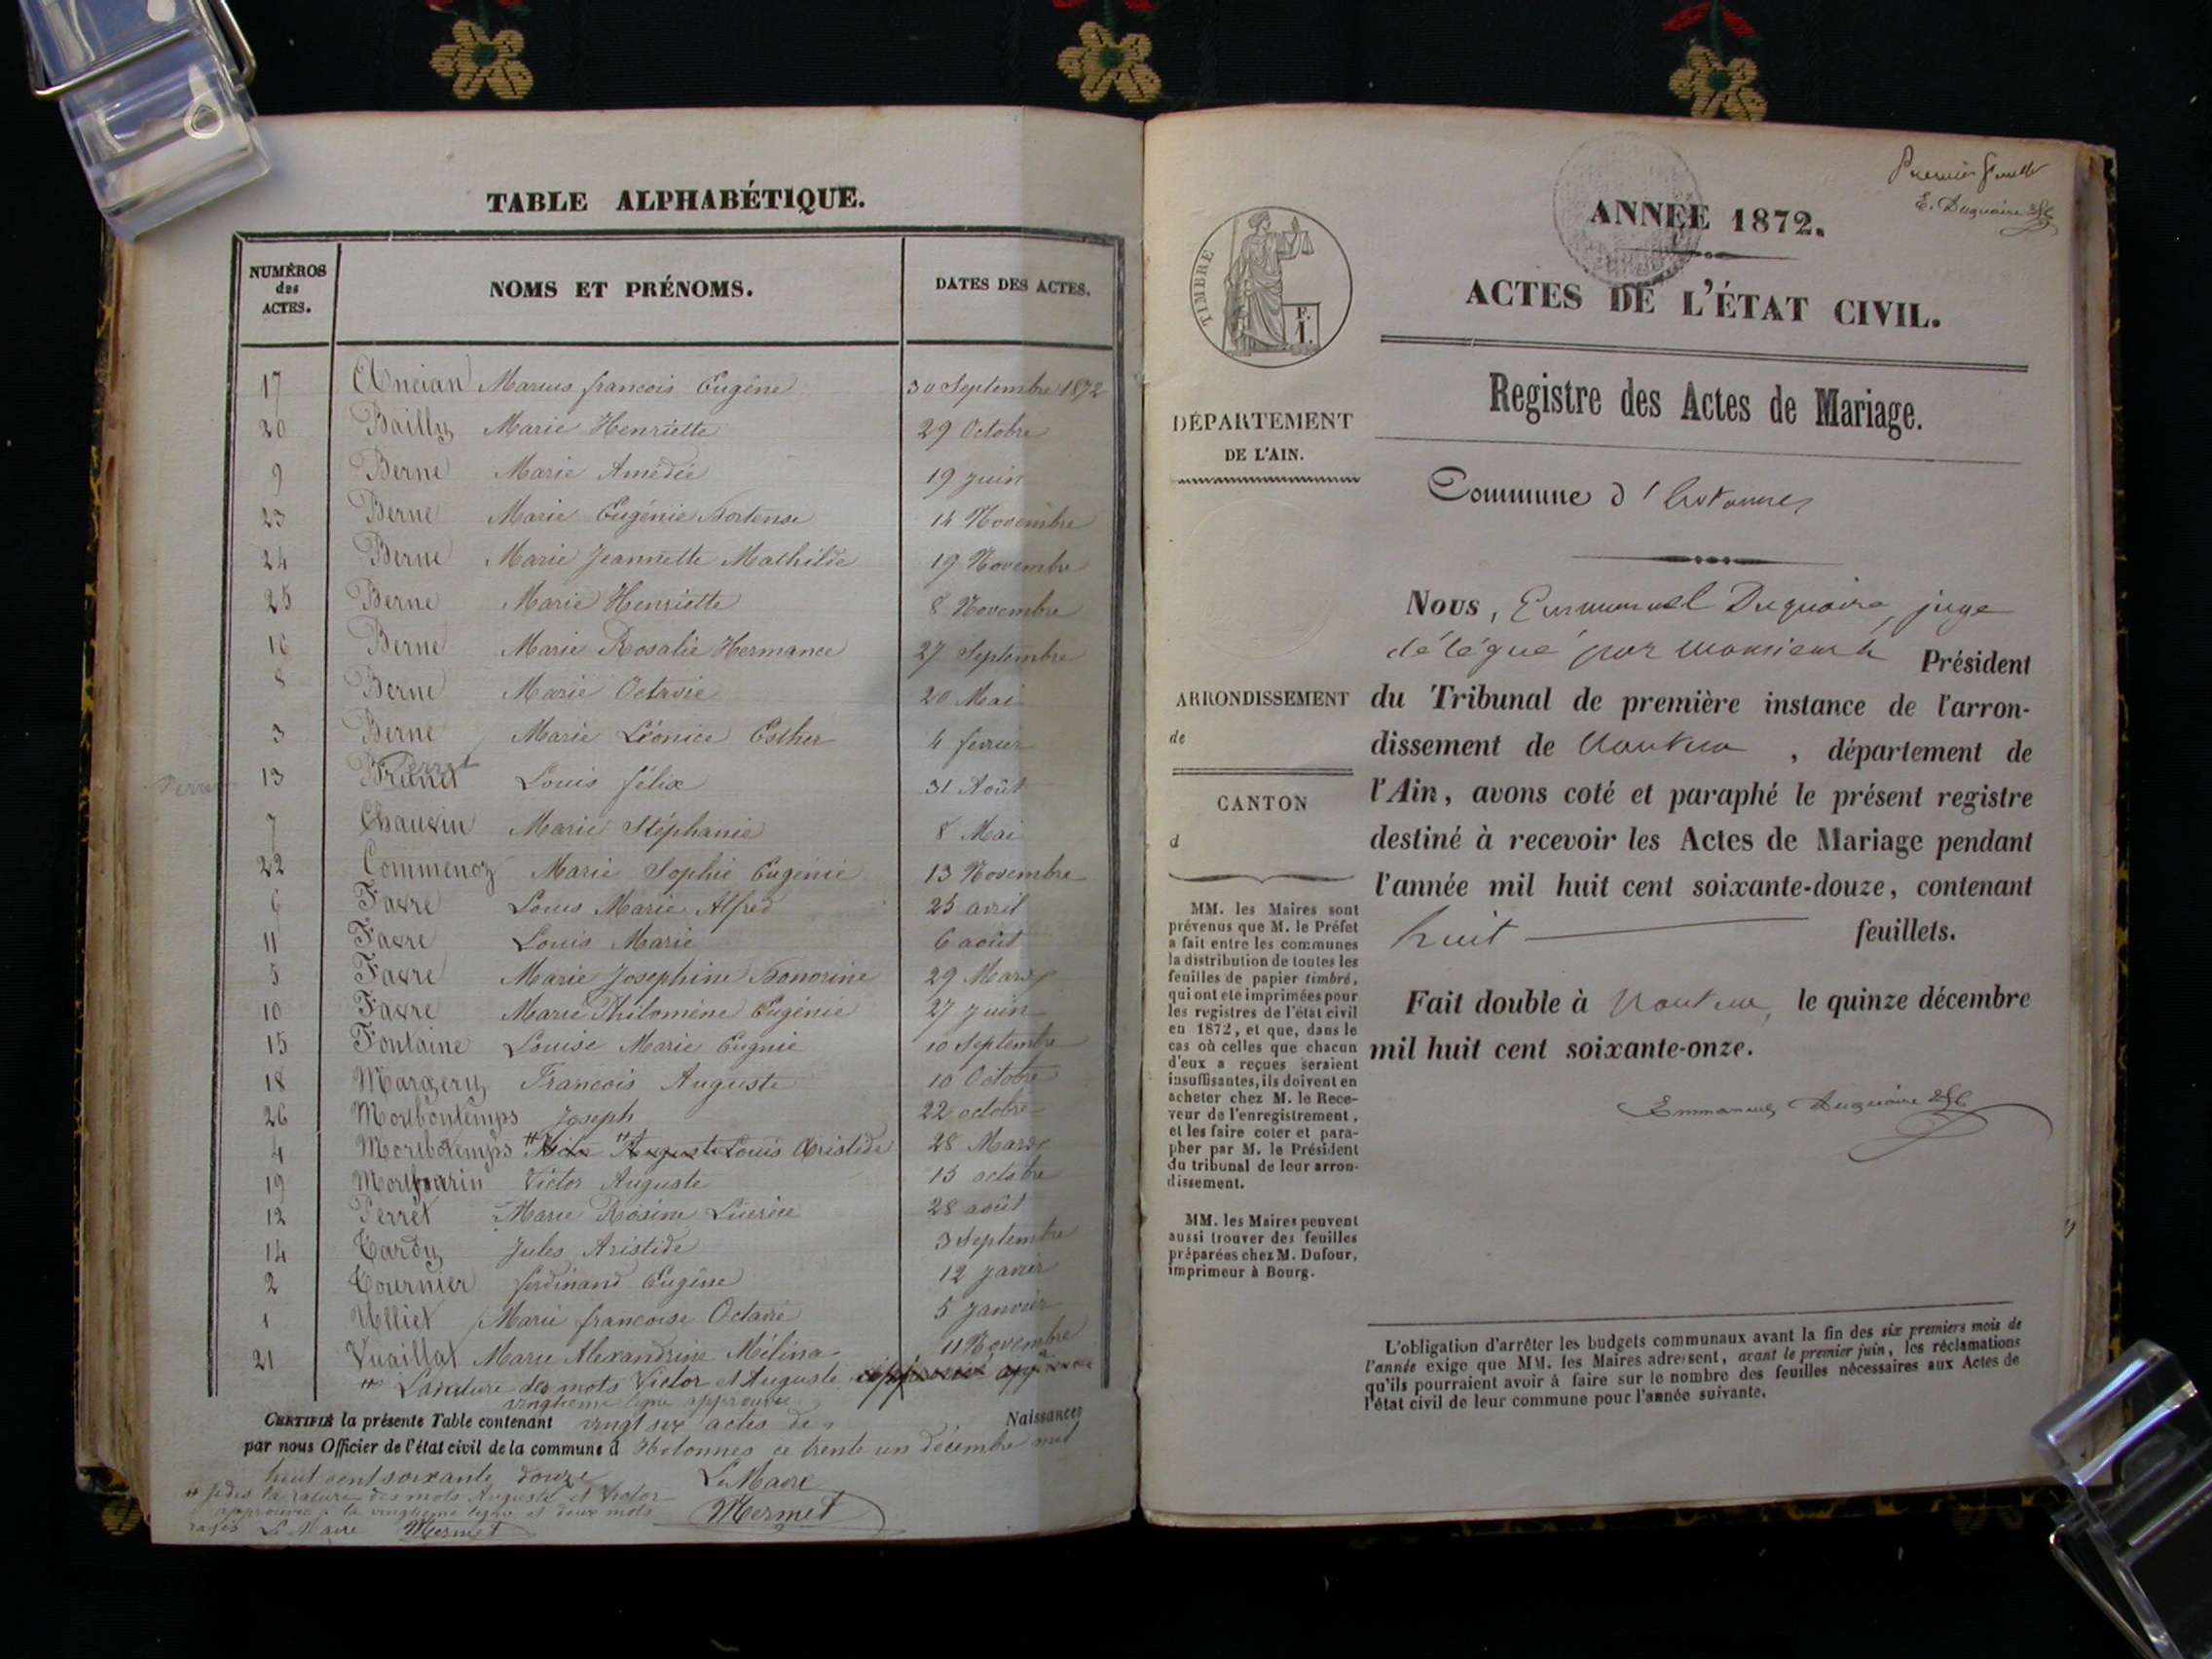 TABLE ALPHABÉTIQUE.
NUMÉROS des ACTES.
NOMS ET PRÉNOMS.
DATES DES ACTES.
17 Ancian Marius francois Eugène 30 Septembre 1872
20 Bailly Marie Henriette 29 Octobre
9 Berne Marie Amédée 19 juin
23 Berne Marie Eugénie Hortense 14 Novembre
24 Berne Marie Jeannette Mathilde 19 Novembre
25 Berne Marie Henriette 8 Novembre
16 Berne Marie Rosalie Hermance 27 Septembre
8 Berne Marie Octavie 20 Mai
3 Berne Marie Léonice Esther 4 fevrier
Perret
13 Louis félix 31 Août
7 Chauvin Marie Stéphanie 8 Mai
22 Commenoz Marie Sophie Eugénie 13 Novembre
6 Favre Louis Marie Alfred 25 avril
11 Favre Louis Marie 6 août
5 Favre Marie Josephine Honorine 29 Mars
10 Favre Marie Philomène Eugénie 27 juin
15 Fontaine Louise Marie Eugnie 10 Septembre
18 Margery Francois Auguste 10 Octobre
26 Monbontemps Joseph 22 octobre
4 Louis Aristide 28 Mars
19 Victor Auguste 15 octobre
12 Perret Marie Rosine Lucrèce 28 août
14 Tardy Jules Aristide 3 Septembre
2 Tournier ferdinand Eugène 12 janvier
1 Ulliet Marie francoise Octavie 5 Janvier
21 Vuaillat Marie Alexandrine Mélina 11 Novembre
des mots Victor et Auguste
vingtieme ligne approuvée
CERTIFIÉ la présente Table contenant vingt six actes de Naissances
par nous Officier de l'état civil de la commune d Hotonnes ce trente un décembre mil
huit cent soixante douze Le Maire
Mermet
la rature des mots Auguste et Victor
approuvée à la vingtieme ligne et deux mots
rayés Le Maire Mermet
Premier feuillet
E. Duquaire
ANNÉE 1872.
ACTES DE L'ÉTAT CIVIL.
Registre des Actes de Mariage.
TIMBRE
F. 1.
DÉPARTEMENT
DE L'AIN.
ARRONDISSEMENT
de
CANTON
d
MM. les Maires sont
prévenus que M. le Préfet
a fait entre les communes
la distribution de toutes les
feuilles de papier timbré,
qui ont été imprimées pour
les registres de l'état civil
en 1872, et que, dans le
cas où celles que chacun
d'eux a reçues seraient
insuffisantes, ils doivent en
acheter chez M. le Rece-
veur de l'enregistrement,
et les faire coter et para-
pher par M. le Président
du tribunal de leur arron-
dissement.
MM. les Maires peuvent
aussi trouver des feuilles
préparées chez M. Dufour,
imprimeur à Bourg.
Commune d'hotonnes
Nous, Emmanuel Duquaire, juge
délégué par monsieur le Président
du Tribunal de première instance de l'arron-
dissement de Nantua, département de
l'Ain, avons coté et paraphé le présent registre
destiné à recevoir les Actes de Mariage pendant
l'année mil huit cent soixante-douze, contenant
huit feuillets.
Fait double à Nantua, le quinze décembre
mil huit cent soixante-onze.
Emmanuel Duquaire
L'obligation d'arrêter les budgets communaux avant la fin des six premiers mois de
l'année exige que MM. les Maires adressent, avant le premier juin, les réclamations
qu'ils pourraient avoir à faire sur le nombre des feuilles nécessaires aux Actes de
l'état civil de leur commune pour l'année suivante.